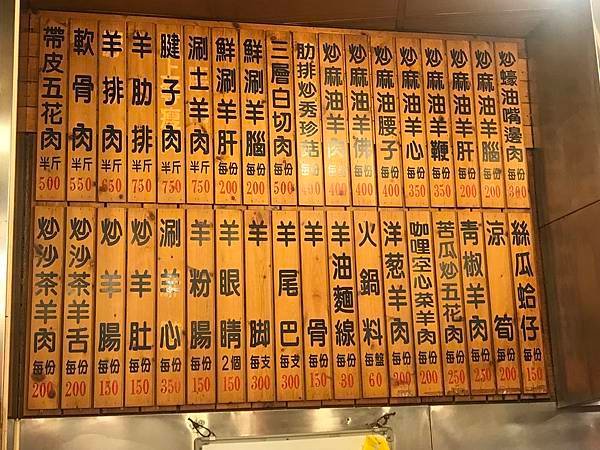 帶皮五花肉 半斤 500
軟骨肉 半斤 550
羊排肉 半斤 650
羊肋排 半斤 750
腱子肉 半斤 750
涮土羊肉 半斤 750
鮮涮羊肝 每份 200
鮮涮羊腦 每份 200
三層白切肉 每份 500
肋排炒秀珍菇 每份 400
炒麻油羊肉 每份 400
炒麻油羊佛 每份 400
炒麻油腰子 每份 400
炒麻油羊心 每份 350
炒麻油羊鞭 每份 350
炒麻油羊肝 每份 200
炒麻油羊腦 每份 200
炒蠔油嘴邊肉 每份 300
炒沙茶羊肉 每份 200
炒沙茶羊舌 每份 200
炒羊腸 每份 150
炒羊肚 每份 150
涮羊心 每份 350
羊粉腸 每份 150
羊眼睛 2個 150
羊腳 每支 300
羊尾巴 每支 300
羊骨 每份 150
羊油麵線 每份 30
火鍋料 每盤 60
洋葱羊肉 每份 200
咖哩空心菜羊肉 每份 200
苦瓜炒五花肉 每份 250
青椒羊肉 每份 250
涼筍 每份 150
絲瓜蛤仔 每份 150